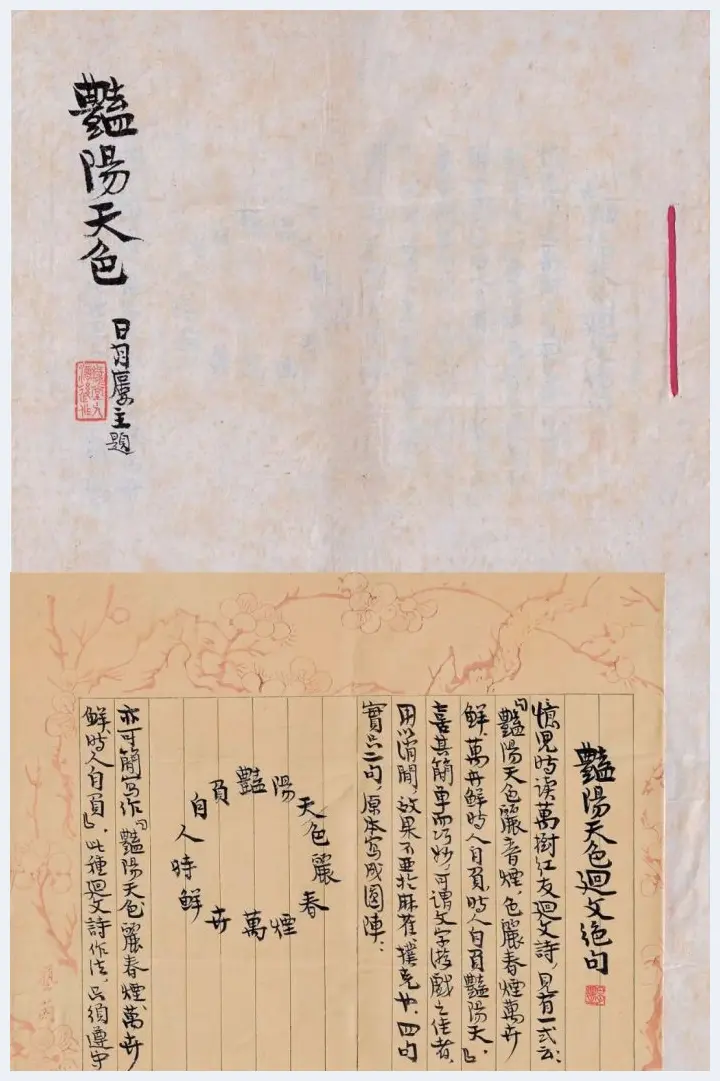 豔陽天色
日月廔主題
豔陽天色迴文絕句
憶兒時讀萬樹紅友迴文詩，見有一式云：
「豔陽天色麗春煙，色麗春煙萬卉
鮮，萬卉鮮時人自員，時人自員豔陽天」，
喜其簡單而巧妙，可謂文字游戲之佳者，
用以消閒，效果不亞於麻雀、撲克也。四句
實只二句，原本寫成圓陣：
豔陽天色麗春煙萬卉鮮時人自員
亦可簡寫作「豔陽天色麗春煙，萬卉
鮮時人自員」，此種迴文詩作法，只須遵守